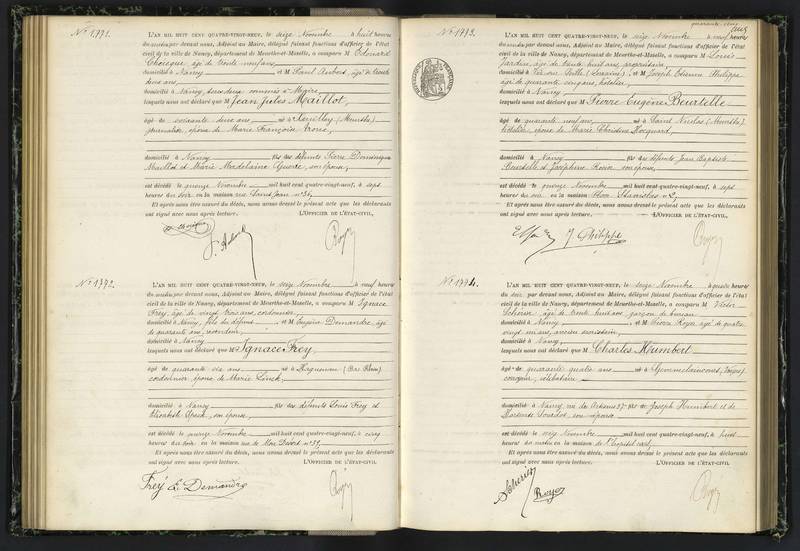 N° 1791.
L'AN MIL HUIT CENT QUATRE-VINGT-NEUF, le seize Novembre à huit heures
du matin par devant nous, Adjoint au Maire, délégué faisant fonctions d'officier de l'état
civil de la ville de Nancy, département de Meurthe-et-Moselle, a comparu M Edouard
âgé de trente neuf ans,
domicilié à Nancy et M Paul Aubert, âgé de trente
deux ans,
domicilié à Nancy, tous deux commis à Mairie,
lesquels nous ont déclaré que M Jean Jules Maillot,
âgé de soixante deux ans né à (Meurthe)
journalier, époux de Marie Françoise
domicilié à Nancy fils des défunts Pierre Dominique
Maillot et Marie Madelaine son épouse,
est décédé le quinze Novembre mil huit cent quatre-vingt-neuf, à sept
heures du soir en la maison rue Saint Jean n° 31,
Et après nous être assuré du décès, nous avons dressé le présent acte que les déclarants
ont signé avec nous après lecture. L'OFFICIER DE L'ÉTAT-CIVIL,
N° 1792.
L'AN MIL HUIT CENT QUATRE-VINGT-NEUF, le seize Novembre à neuf heures
du matin par devant nous, Adjoint au Maire, délégué faisant fonctions d'officier de l'état
civil de la ville de Nancy, département de Meurthe-et-Moselle, a comparu M Ignace
Frey, âgé de vingt trois ans, cordonnier,
domicilié à Nancy, fils du défunt, et M Eugène Demandre, âgé
de quarante ans,
domicilié à Nancy
lesquels nous ont déclaré que M Ignace Frey,
âgé de quarante six ans né à Haguenau (Bas Rhin)
cordonnier, époux de Marie
domicilié à Nancy fils des défunts Louis Frey et
Elisabeth son épouse,
est décédé le quinze Novembre mil huit cent quatre-vingt-neuf, à cinq
heures du soir en la maison rue de Mon Désert n° 39,
Et après nous être assuré du décès, nous avons dressé le présent acte que les déclarants
ont signé avec nous après lecture. L'OFFICIER DE L'ÉTAT-CIVIL,
Frey E. Demandre
quarante-cinq
N° 1793.
L'AN MIL HUIT CENT QUATRE-VINGT-NEUF, le seize Novembre à neuf heures
du matin par devant nous, Adjoint au Maire, délégué faisant fonctions d'officier de l'état
civil de la ville de Nancy, département de Meurthe-et-Moselle, a comparu M Louis
âgé de trente huit ans, propriétaire,
domicilié à (Lorraine) et M Joseph Etienne Philippe
âgé de quarante cinq ans, hôtelier,
domicilié à Nancy
lesquels nous ont déclaré que M Pierre Eugène Beurtelle
âgé de quarante neuf ans, né à Saint Nicolas (Meurthe)
hôtelier, époux de Marie Christine Hocquard,
domicilié à Nancy fils des défunts Jean Baptiste
Beurtelle et Joséphine son épouse,
est décédé le quinze Novembre mil huit cent quatre-vingt-neuf, à sept
heures du soir en la maison Place Stanislas n° 2,
Et après nous être assuré du décès, nous avons dressé le présent acte que les déclarants
ont signé avec nous après lecture. L'OFFICIER DE L'ÉTAT-CIVIL,
J. Philippe
N° 1794.
L'AN MIL HUIT CENT QUATRE-VINGT-NEUF, le seize Novembre à quatre heures
du soir par devant nous, Adjoint au Maire, délégué faisant fonctions d'officier de l'état
civil de la ville de Nancy, département de Meurthe-et-Moselle, a comparu M Victor
âgé de trente huit ans, garçon de bureau
domicilié à Nancy et M Royer âgé de quatre
vingt un ans, ancien sacristain,
domicilié à Nancy,
lesquels nous ont déclaré que M Charles Humbert
âgé de quarante quatre ans né à Gemmelaincourt (Vosges)
célibataire
domicilié à Nancy, rue des Artisans 37 fils de Joseph Humbert et de
son épouse
est décédé le seize Novembre mil huit cent quatre-vingt-neuf, à huit
heures du matin en la maison de l'hôpital civil,
Et après nous être assuré du décès, nous avons dressé le présent acte que les déclarants
ont signé avec nous après lecture. L'OFFICIER DE L'ÉTAT-CIVIL,
Royer